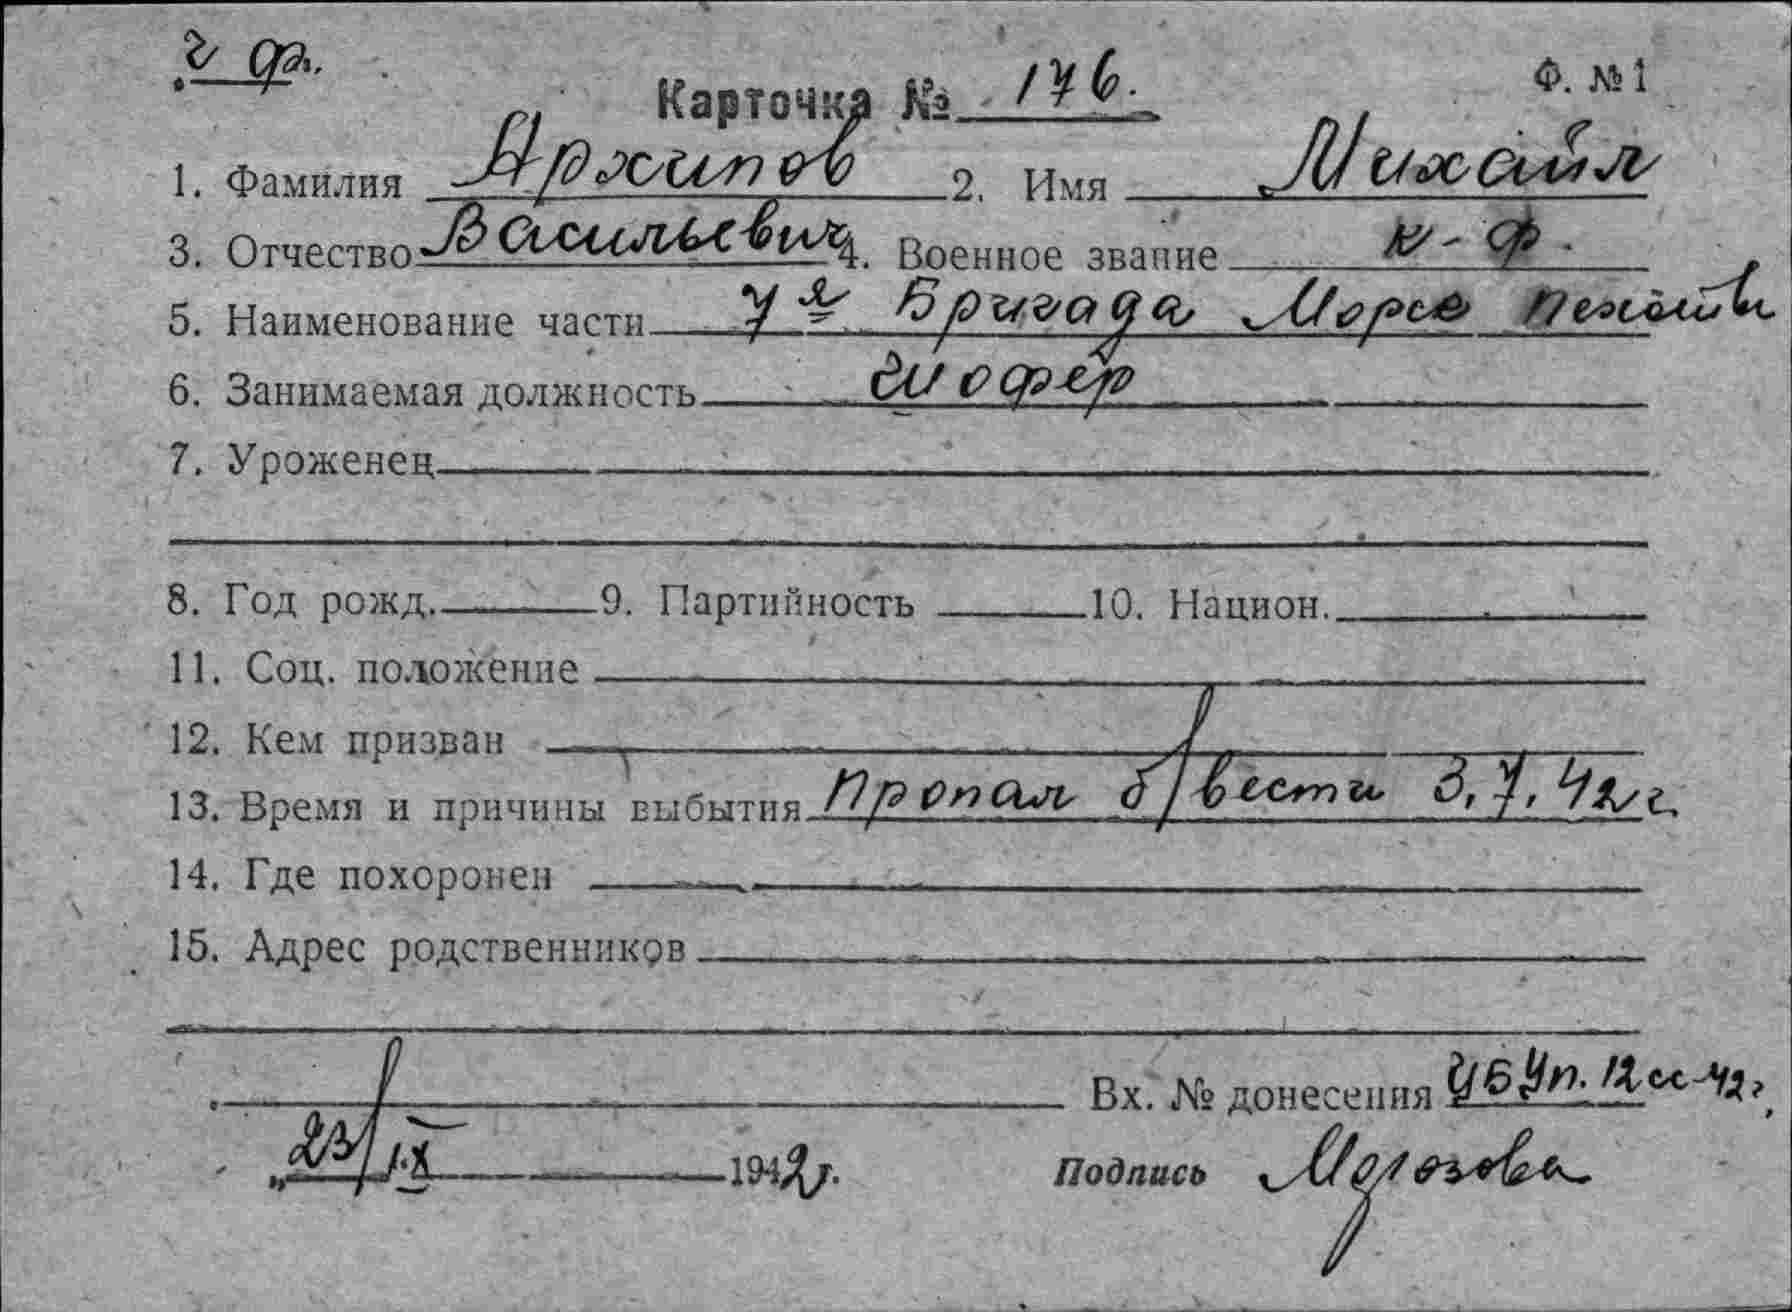 ч ф.
Карточка № 176. Ф. №1
1. Фамилия Архипов 2. Имя Михаил
3. Отчество Васильевич 4. Военное звание к-ф.
5. Наименование части 7я Бригада Морск пехоты
6. Занимаемая должность Шофер
7. Уроженец
8. Год рожд. 9. Партийность 10. Национ.
11. Соц. положение
12. Кем призван
13. Время и причины выбытия Пропал б/вести 3.7.42г.
14. Где похоронен
15. Адрес родственников
Вх. № донесения 12сс-42г.
„23/IX 1942г. Подпись Морозова